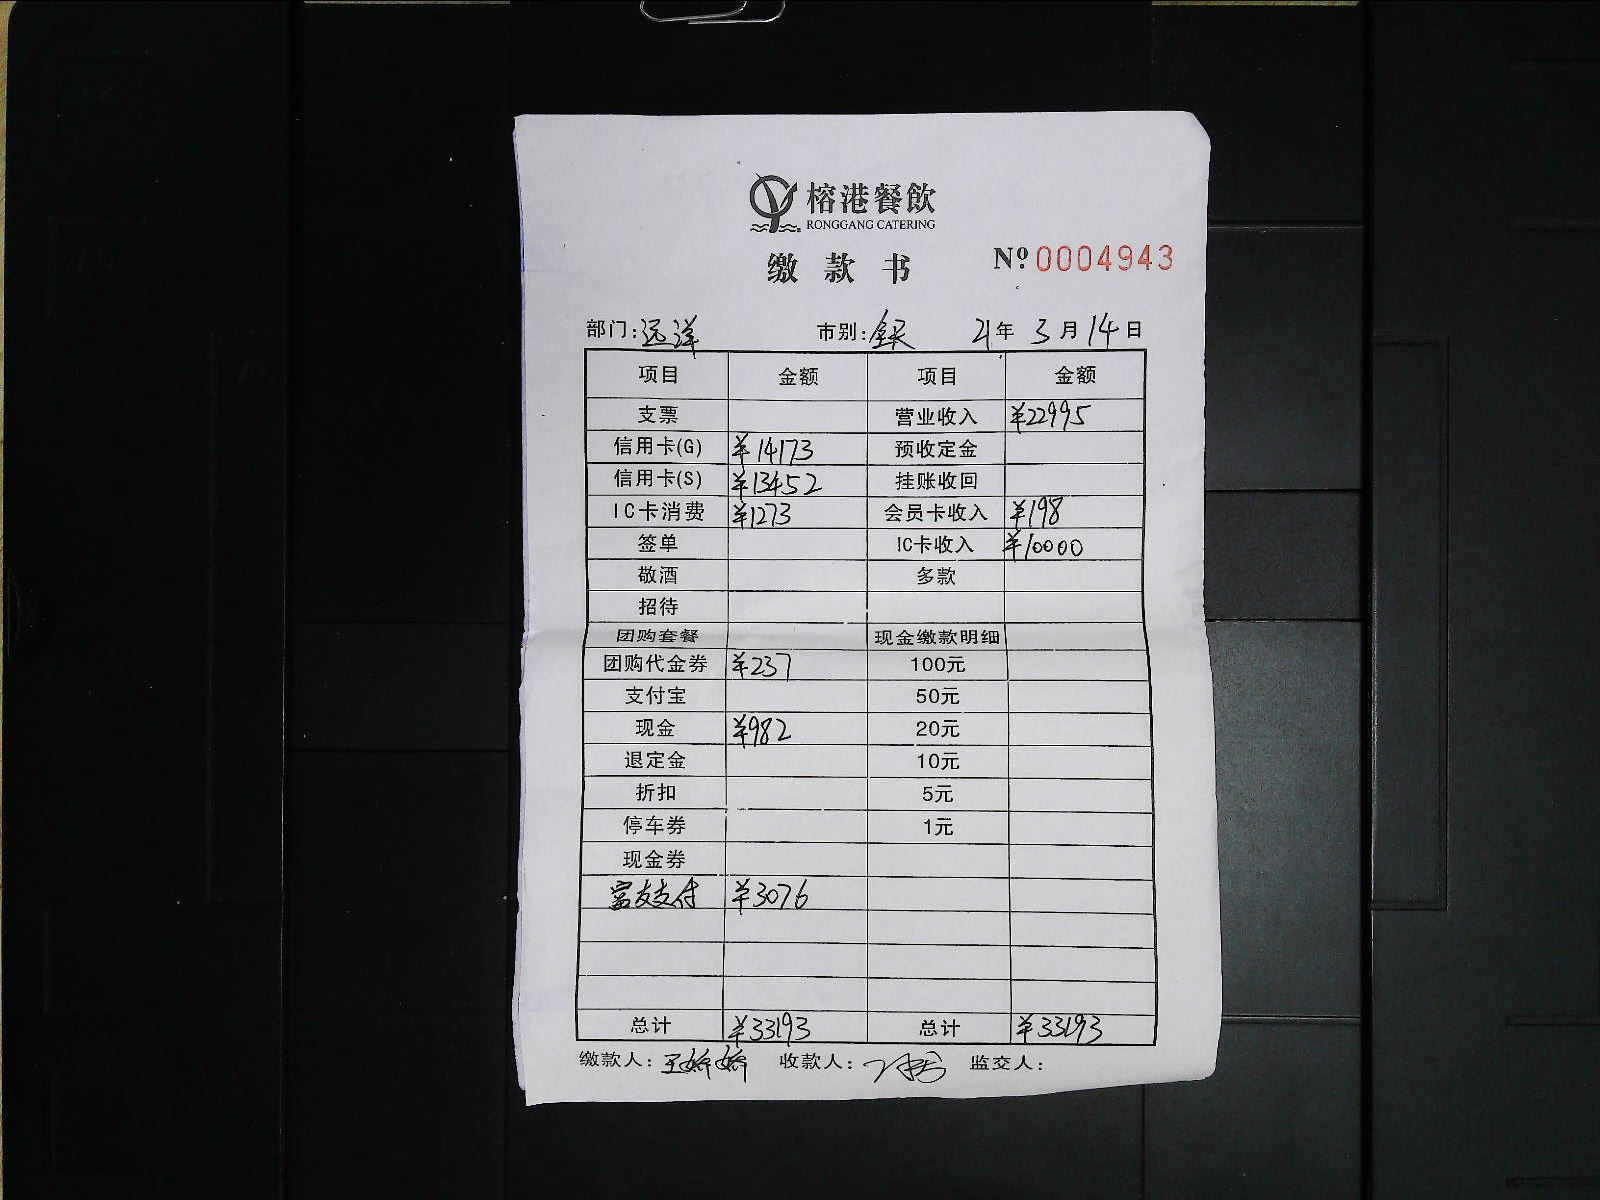 榕港餐飲
RONGGANG CATERING
缴款书 Nº 0004943
部门:远洋 市别:全天 21年 3月 14日
项目 金额 项目 金额
支票 营业收入 ¥22995
信用卡(G) ¥14173 预收定金
信用卡(S) ¥13452 挂账收回
IC卡消费 ¥1273 会员卡收入 ¥198
签单 IC卡收入 ¥10000
敬酒 多款
招待
团购套餐 现金缴款明细
团购代金券 ¥237 100元
支付宝 50元
现金 ¥982 20元
退定金 10元
折扣 5元
停车券 1元
现金券
富友支付 ¥3076
总计 ¥33193 总计 ¥33193
缴款人:王娇娇 收款人: 监交人: